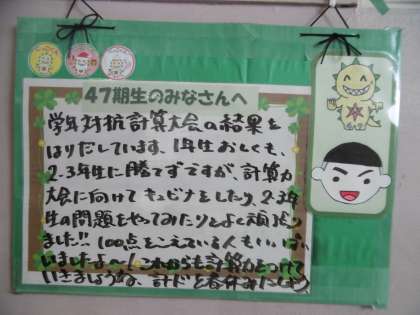 47期生のみなさんへ
学年対抗計算大会の結果を
はりだしています。1年生おしくも、
2-3年生に勝てずですが、計算力
大会に向けてキュビナをしたり、2-3年
生の問題をやってみたりとよく頑張り
ました!! 100点をこえている人もいっぱい
いましたよ〜! これからも計算力をつけて
いきましょうな、計ドと